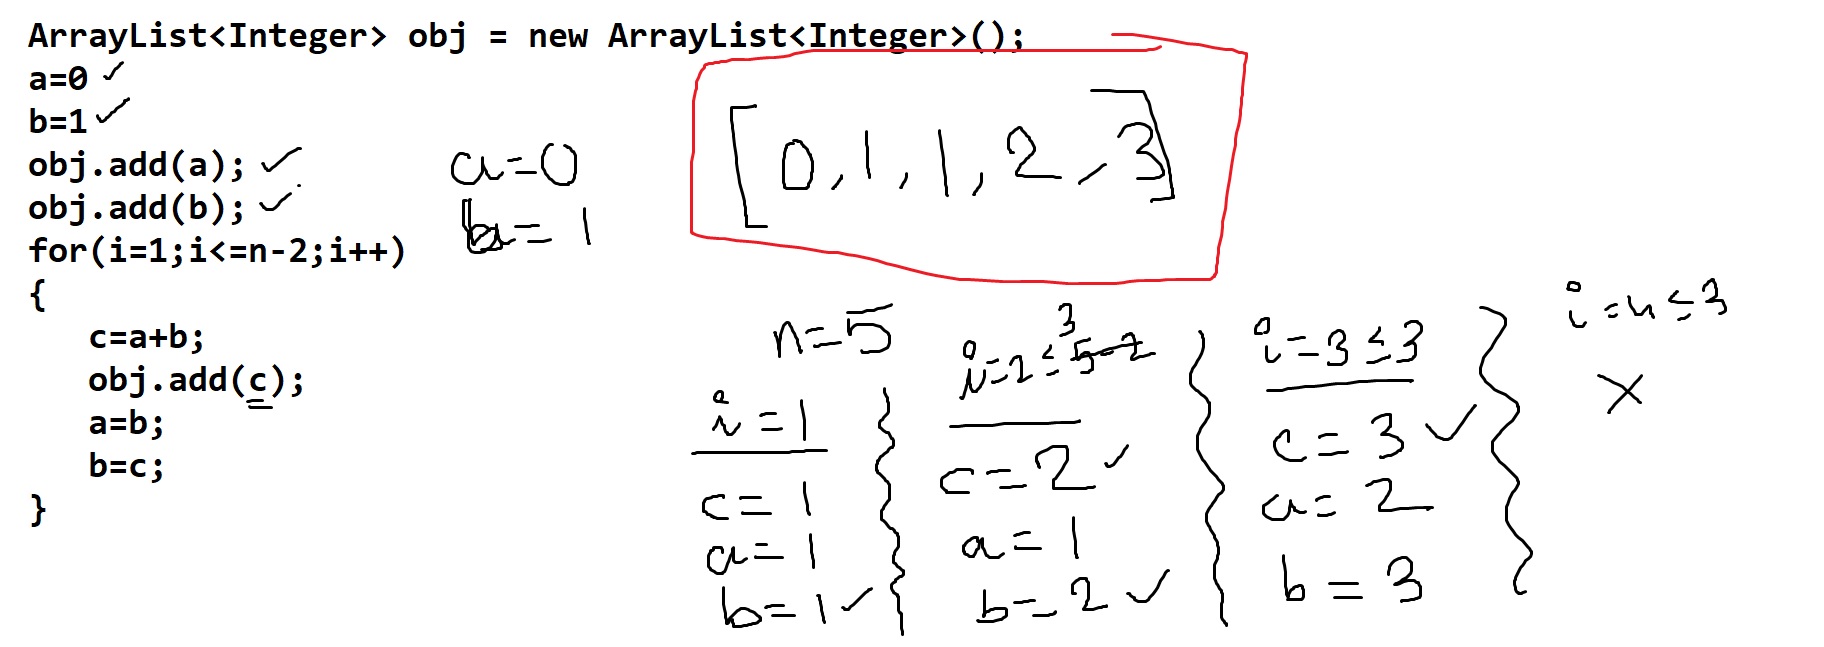 ArrayList<Integer> obj = new ArrayList<Integer>();
a=0
b=1
obj.add(a);
obj.add(b);
for(i=1;i<=n-2;i++)
{
c=a+b;
obj.add(c);
a=b;
b=c;
}
a=0
b=1
[0,1,1,2,3]
n=5
i=1
c=1
a=1
b=1
3
i=2≤5-2
c=2
a=1
b=2
i=3≤3
c=3
a=2
b=3
i=4≤3